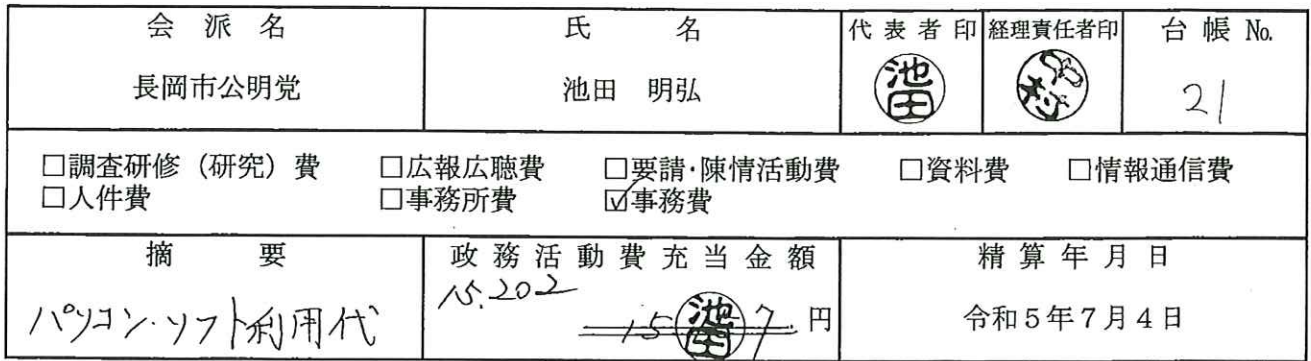 会派名 氏名 代表者印 経理責任者印 台帳№
長岡市公明党 池田 明弘 池田 21
□調査研修（研究）費 □広報広聴費 □要請・陳情活動費 □資料費 □情報通信費
□人件費 □事務所費 ☑事務費
摘要 政務活動費充当金額 精算年月日
15.202
パソコン・ソフト利用代 池田 円 令和5年7月4日